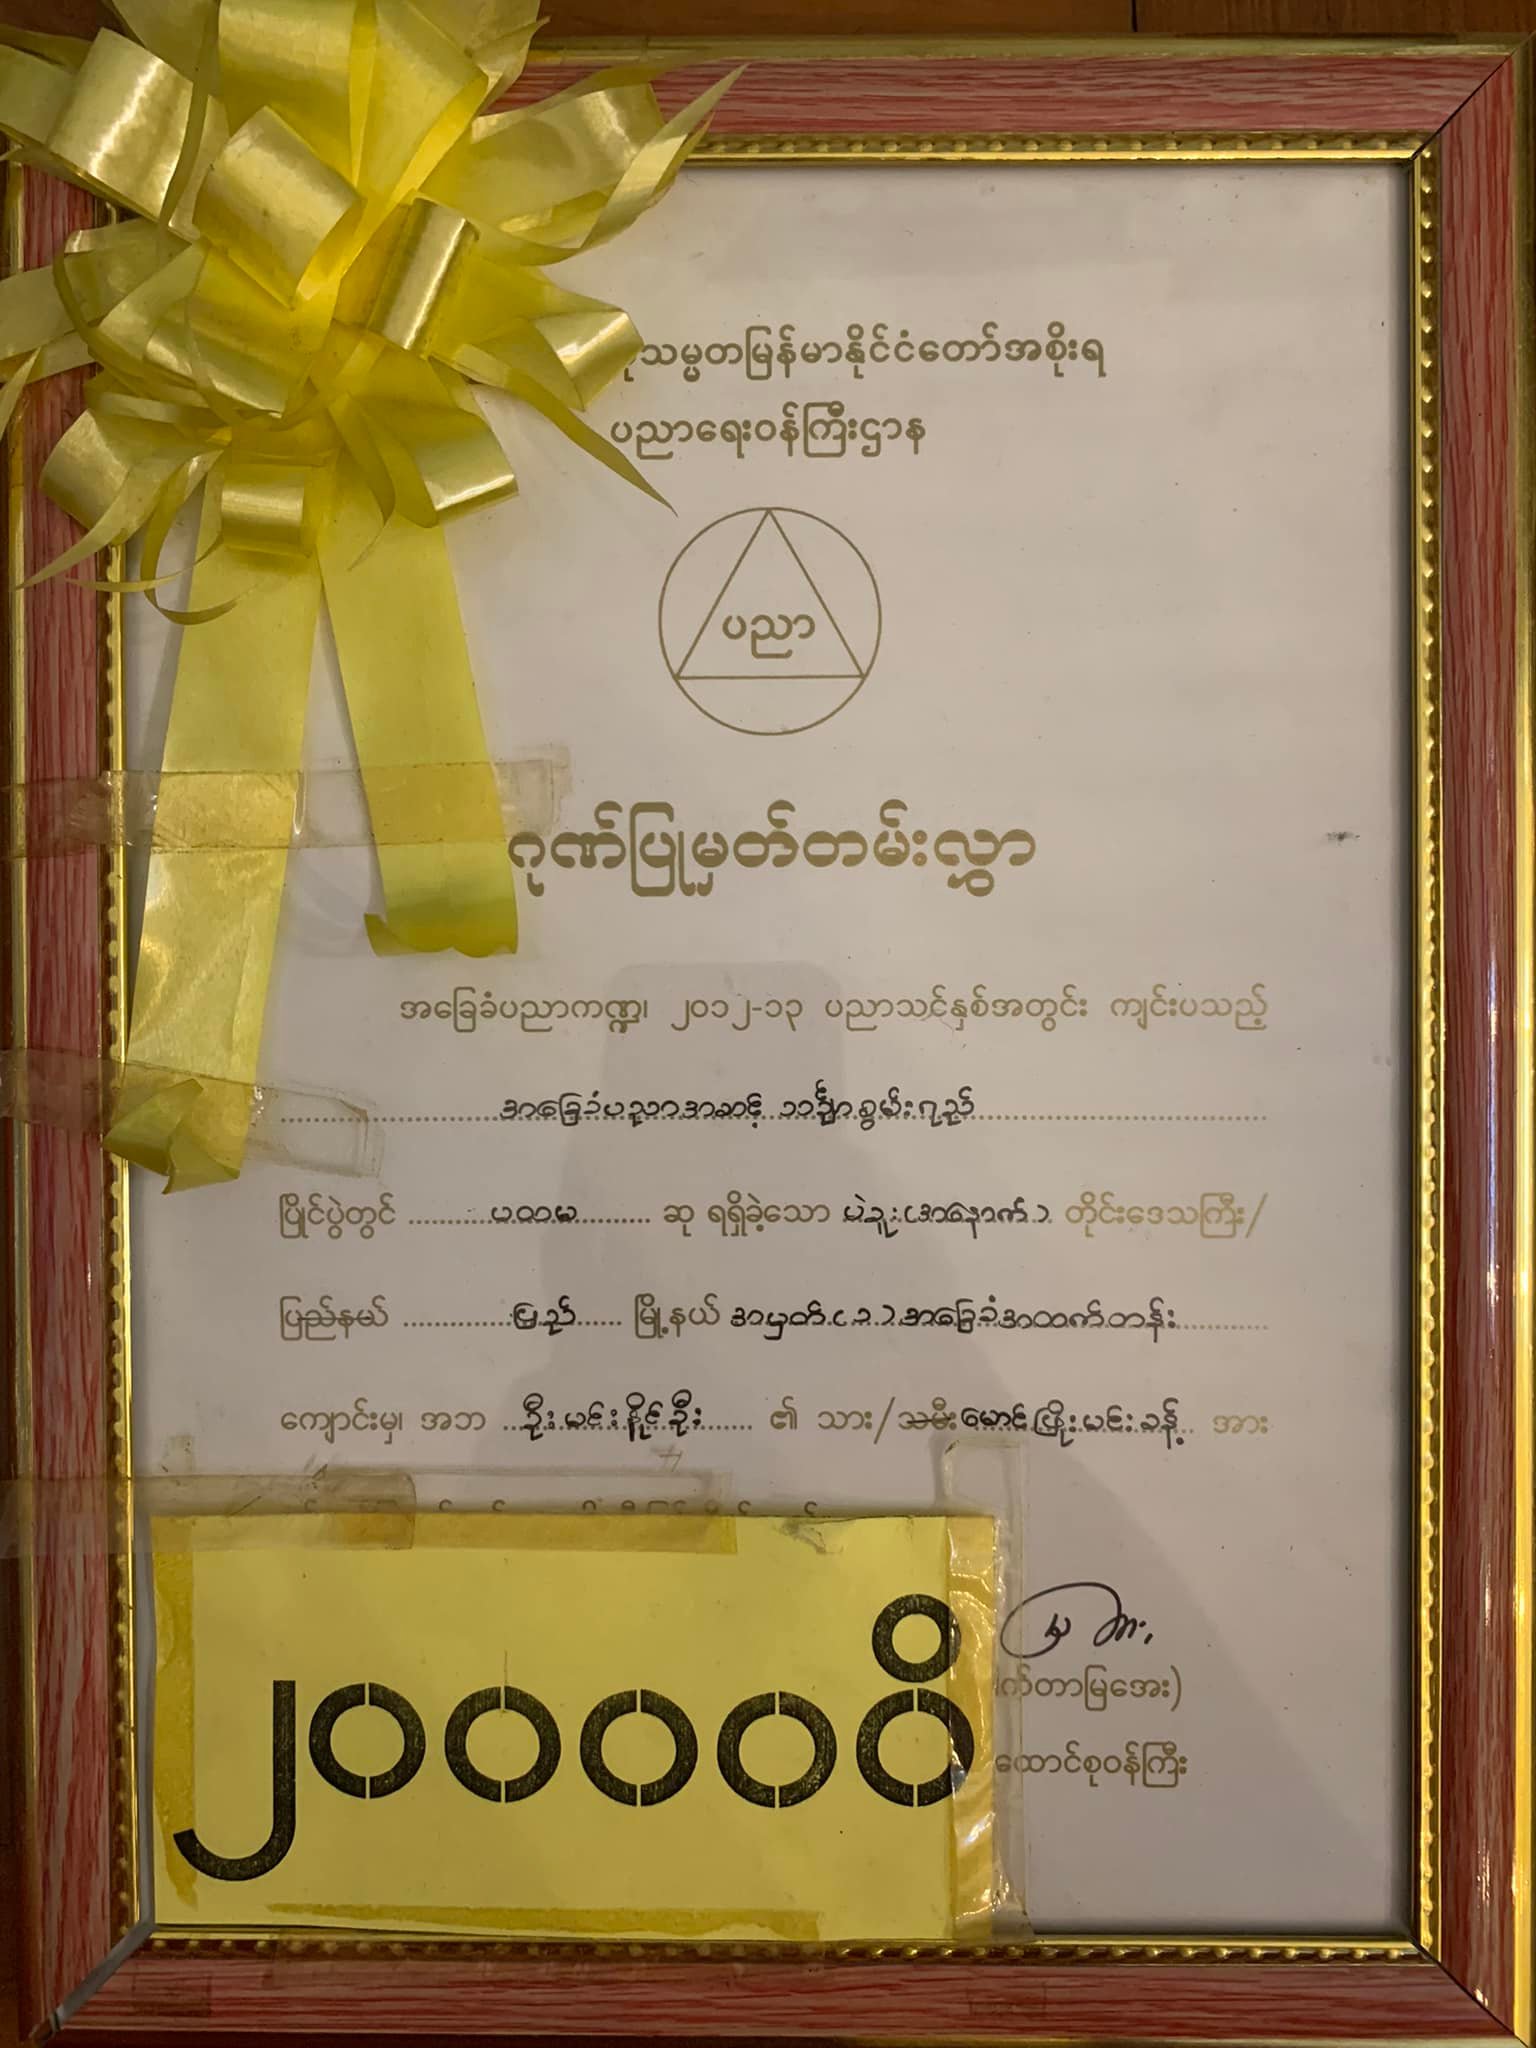 သမ္မတမြန်မာနိုင်ငံတော်အစိုးရ
ပညာရေးဝန်ကြီးဌာန
ပညာ
ဂုဏ်ပြုမှတ်တမ်းလွှာ
အခြေခံပညာကဏ္ဍ၊ ၂၀၁၂-၁၃ ပညာသင်နှစ်အတွင်း ကျင်းပသည့်
အခြေခံပညာအဆင့် သင်္ချာစွမ်းရည်
ပြိုင်ပွဲတွင် ပထမ ဆု ရရှိခဲ့သော ပဲခူး(အနောက်) တိုင်းဒေသကြီး/
ပြည်နယ် ပြည် မြို့နယ် အမှတ်(၁)အခြေခံအထက်တန်း
ကျောင်းမှ၊ အဘ ဦးမင်းနိုင်ဦး ၏ သား/သမီး မောင်ဖြိုးမင်းခန့် အား
က်တာမြအေး)
ထောင်စုဝန်ကြီး
၂၀၀၀၀ိ